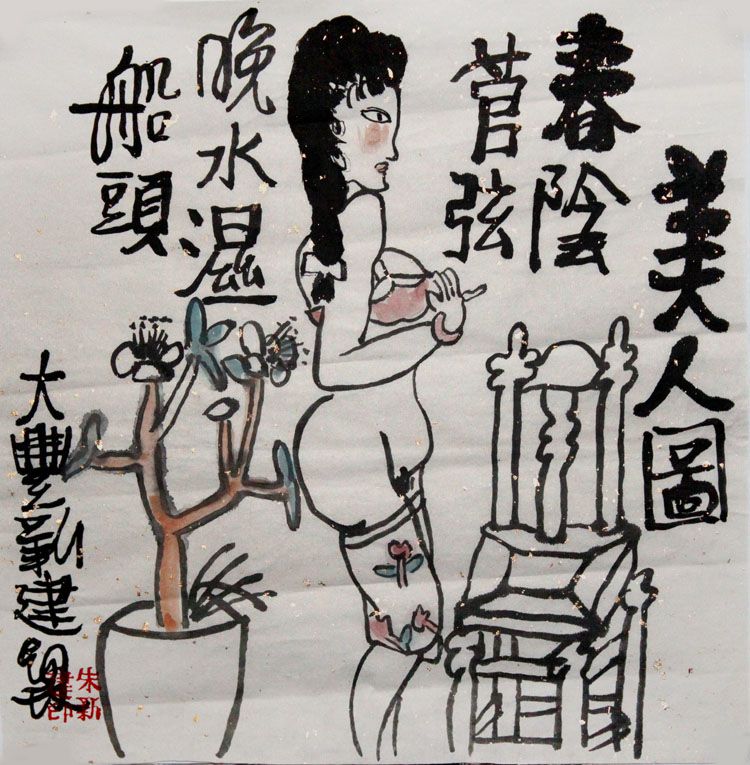 美人圖
春陰
菅弦
晚水濕
船頭
大豐新建
朱新建印